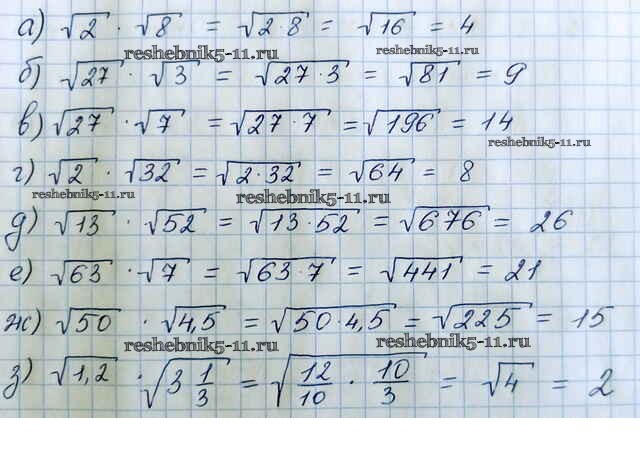 а) √2 · √8 = √2·8 = √16 = 4
reshebnik5-11.ru reshebnik5-11.ru
б) √27 · √3 = √27·3 = √81 = 9
в) √27 · √7 = √27·7 = √196 = 14
reshebnik5-11.ru
г) √2 · √32 = √2·32 = √64 = 8
reshebnik5-11.ru reshebnik5-11.ru
д) √13 · √52 = √13·52 = √676 = 26
е) √63 · √7 = √63·7 = √441 = 21
ж) √50 · √4,5 = √50·4,5 = √225 = 15
reshebnik5-11.ru reshebnik5-11.ru
з) √1,2 · √3 1/3 = √12/10 · 10/3 = √4 = 2